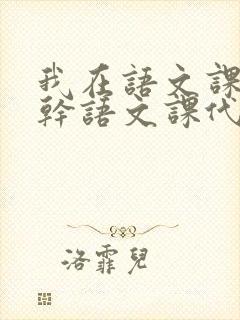 我在語文課
幹語文課代
洛霏兒